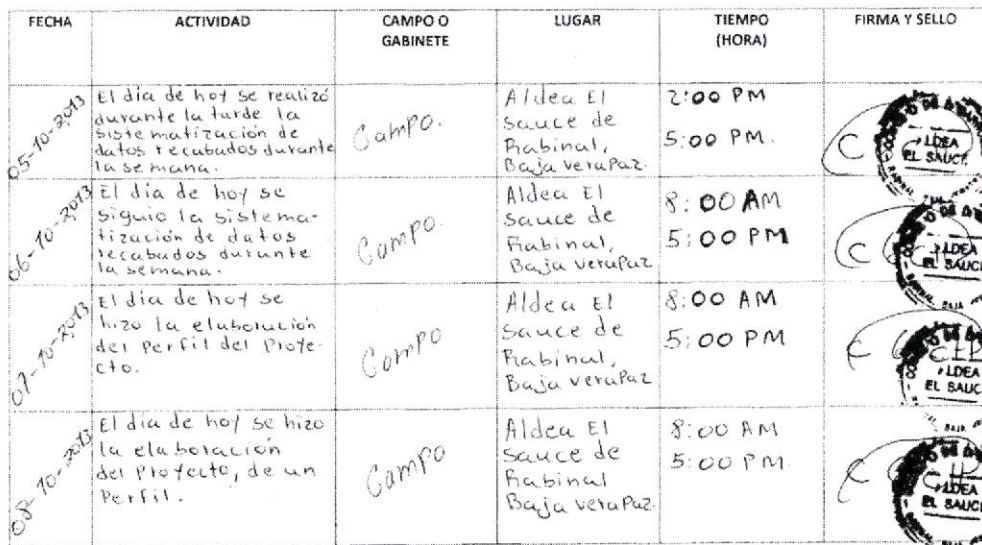 FECHA
ACTIVIDAD
CAMPO O
GABINETE
LUGAR
TIEMPO
(HORA)
FIRMA Y SELLO
05-10-2013
El día de hoy se realizó
durante la tarde la
sistematización de
datos recabados durante
la semana.
Campo.
Aldea El
Sauce de
Rabinal,
Baja verapaz.
2:00 PM
5:00 PM.
LDEA
EL SAUCE
06-10-2013
El día de hoy se
siguio la sistema-
tización de datos
recabados durante
la semana.
Campo.
Aldea El
Sauce de
Rabinal,
Baja verapaz
8:00 AM
5:00 PM
LDEA
EL SAUCE
07-10-2013
El día de hoy se
hizo la elaboración
del Perfil del Proye-
cto.
Campo
Aldea El
Sauce de
Rabinal,
Baja verapaz
8:00 AM
5:00 PM
LDEA
EL SAUC
08-10-2013
El día de hoy se hizo
la elaboración
del Proyecto, de un
Perfil.
Campo
Aldea El
Sauce de
Rabinal
Baja verapaz.
8:00 AM
5:00 PM.
LDEA
EL SAUCE